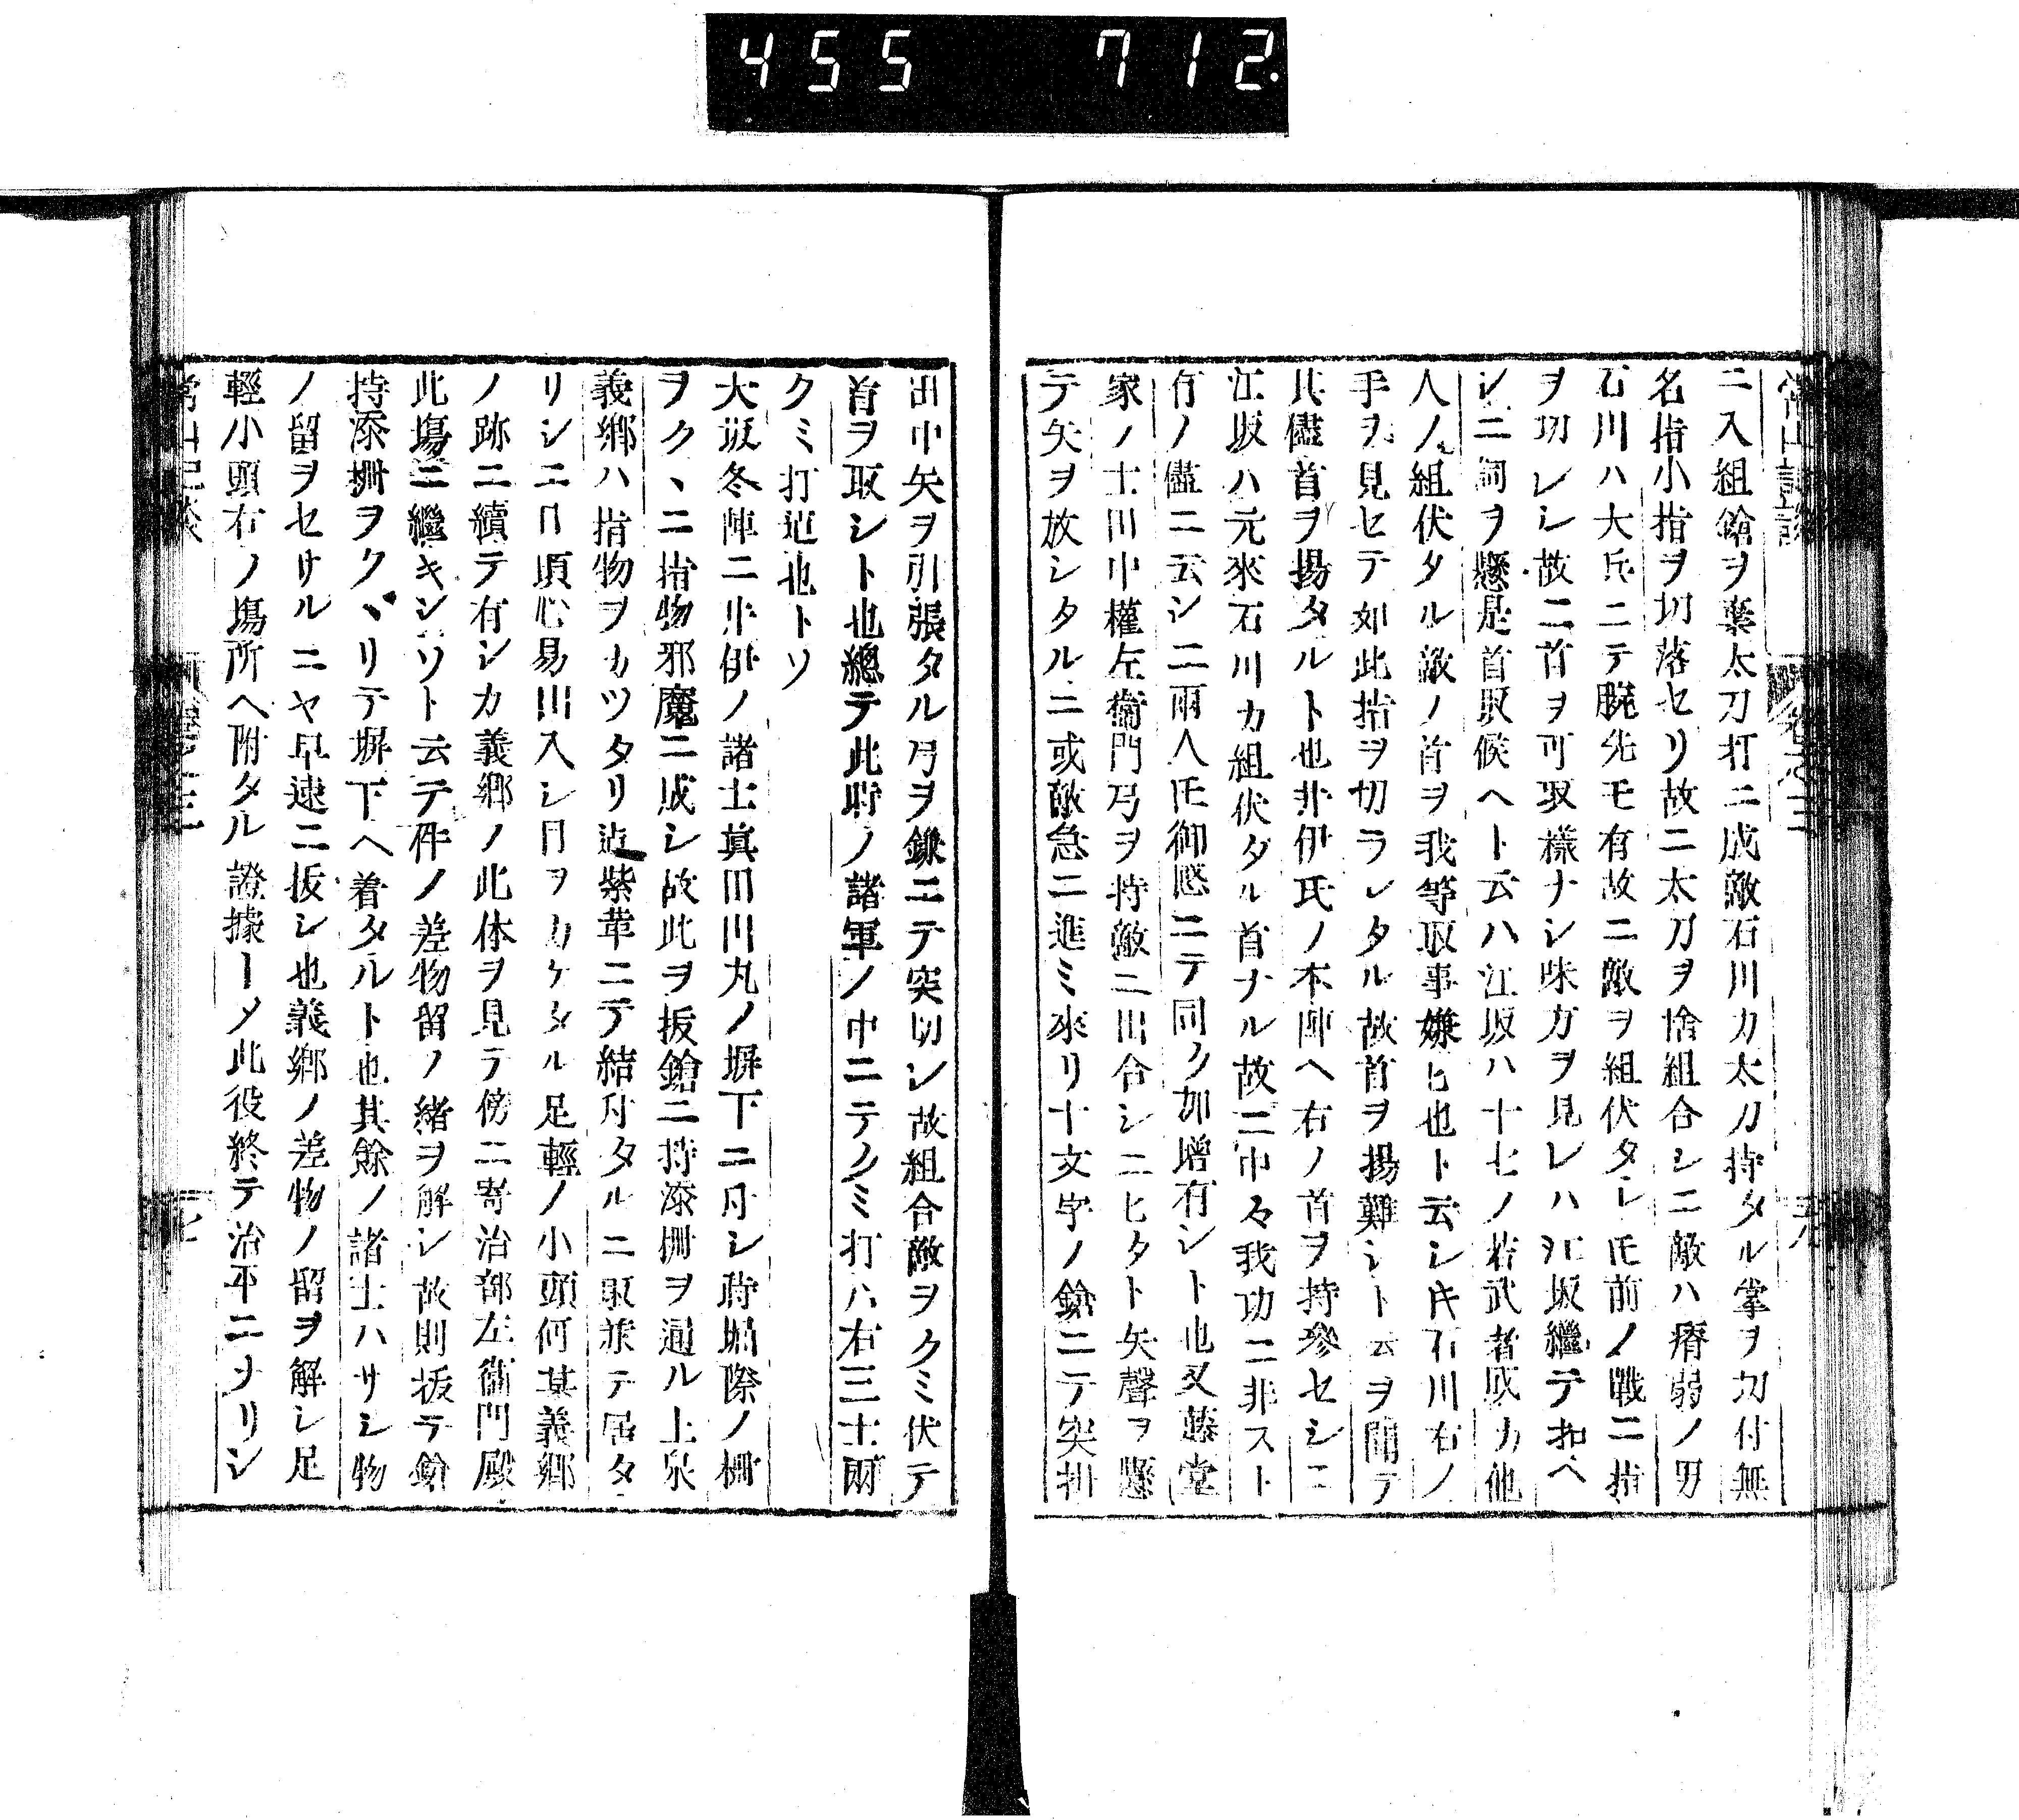 455 712
常山記談 卷之三
ニ入組鎗ヲ棄太刀打ニ成敵石川カ太刀持タル掌ヲ切付無
名指小指ヲ切落セリ故ニ太刀ヲ捨組合シニ敵ハ瘠弱ノ男
石川ハ大兵ニテ腕先モ有故ニ敵ヲ組伏タレ𪜈前ノ戰ニ指
ヲ切レシ故ニ首ヲ可取樣ナシ味方ヲ見レハ江坂繼テ扣ヘ
シニ詞ヲ懸是首取候ヘト云ハ江坂ハ十七ノ若武者取カ他
人ノ組伏タル敵ノ首ヲ我等取事嫌ヒ也ト云シ𪜈石川右ノ
手ヲ見セテ如此指ヲ切ラレタル故首ヲ揚難シト云ヲ聞テ
其儘首ヲ揚タルト也井伊氏ノ本陣ヘ右ノ首ヲ持參セシニ
江坂ハ元來石川カ組伏タル首ナル故ニ中々我功ニ非スト
有ノ儘ニ云シニ兩人𪜈御感ニテ同ク加增有シト也又藤堂
家ノ士田中權左衞門弓ヲ持敵ニ出合シニヒタト矢聲ヲ懸
テ矢ヲ放シタルニ或敵急ニ進ミ來リ十文字ノ鎗ニテ突掛
田中矢ヲ引張タル弓ヲ鎌ニテ突切レ故組合敵ヲクミ伏テ
首ヲ取シト也總テ此時ノ諸軍ノ中ニテクミ打ハ右三士兩
クミ打迠也トソ
大坂冬陣ニ井伊ノ諸士眞田丸ノ塀下ニ付シ時堀際ノ柵
ヲクヽニ指物邪魔ニ成シ故此ヲ拔鎗ニ持添柵ヲ通ル上泉
義郷ハ指物ヲカツタリ迠紫革ニテ結付タルニ取兼テ居タ
リシニ日頃心易出入シ目ヲカケタル足輕ノ小頭何某義郷
ノ跡ニ續テ有シカ義郷ノ此体ヲ見テ傍ニ寄治部左衞門殿
此塲ニ繼キシソト云テ件ノ差物留ノ緒ヲ解シ故則拔テ鎗
持添柵ヲクヾリテ塀下ヘ着タルト也其餘ノ諸士ハサシ物
ノ留ヲセサルニヤ早速ニ拔シ也義郷ノ差物ノ留ヲ解シ足
輕小頭右ノ塲所ヘ附タル證據一メ此役終テ治平ニナリシ
常山記談 卷之三